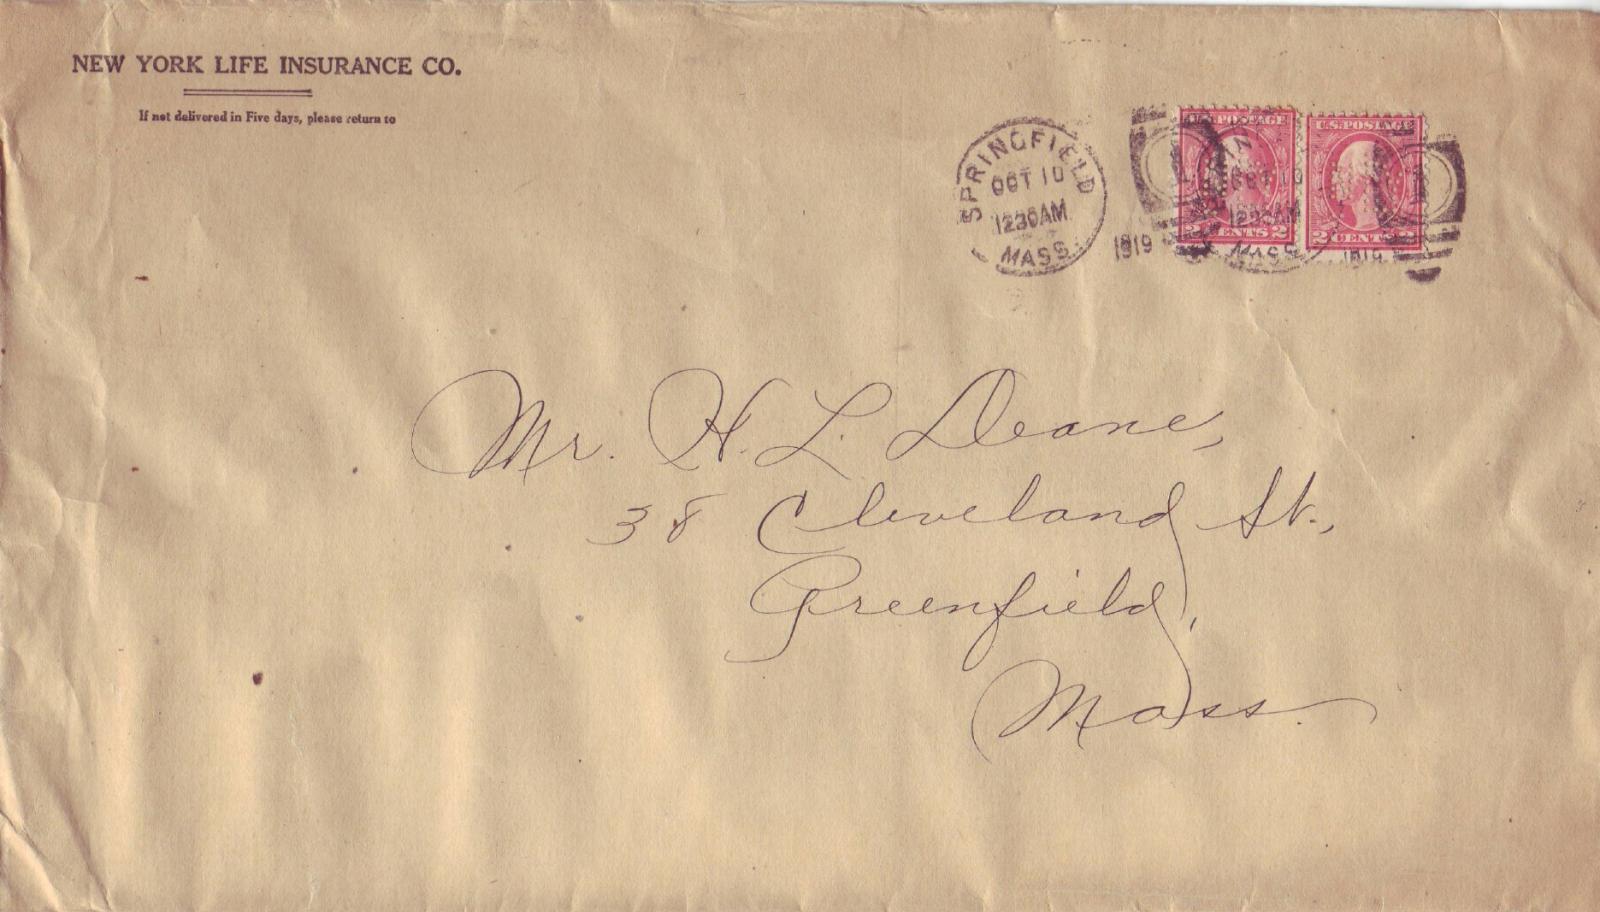 NEW YORK LIFE INSURANCE CO.
If not delivered in Five days, please return to
SPRINGFIELD
OCT 10
1230AM
MASS.
1919
U.S. POSTAGE
2 CENTS 2
U.S. POSTAGE
2 CENTS 2
OCT 10
1230AM
MASS
1919
Mr. H. L. Deane,
38 Cleveland St.,
Greenfield,
Mass.